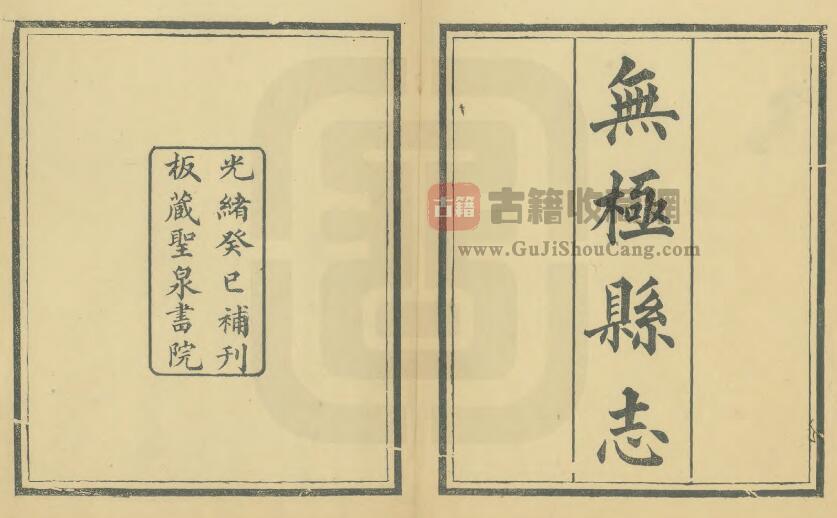 無極縣志
光緒癸巳補刊
板藏聖泉書院
古籍
古籍收藏網
www.GuJiShouCang.com